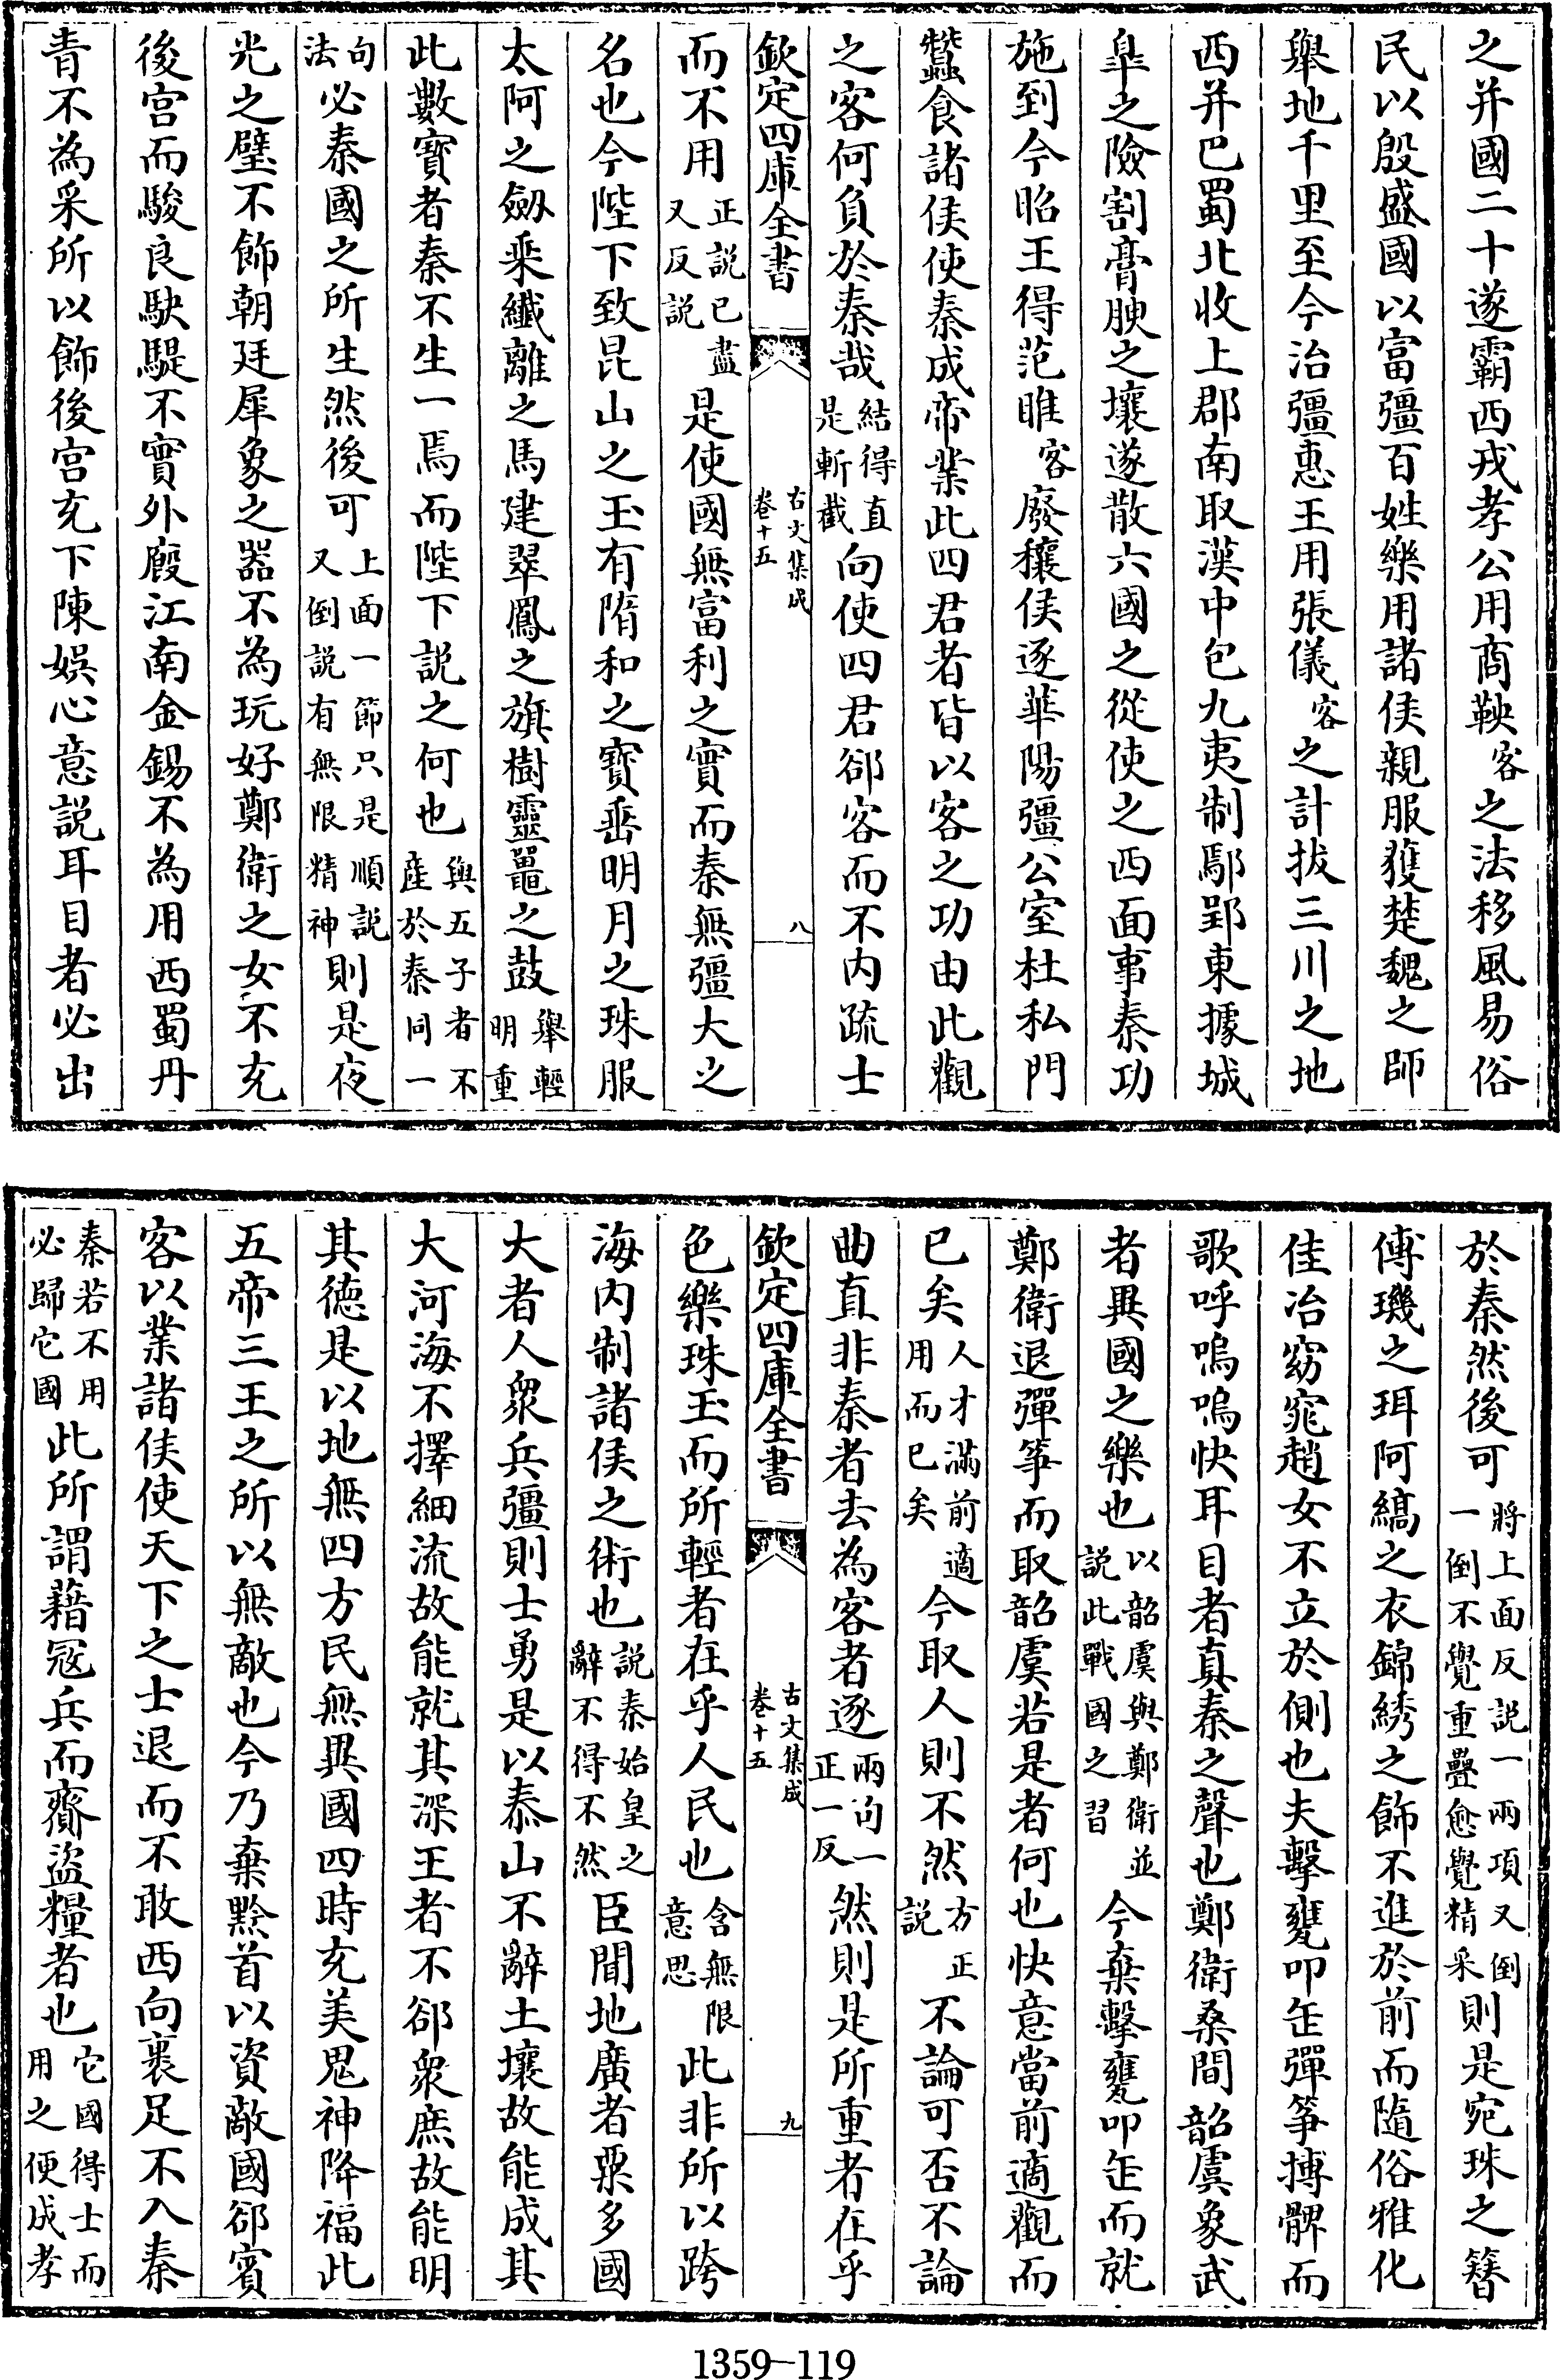 之并國二十遂霸西戎孝公用商鞅客之法移風易俗
民以殷盛國以富彊百姓樂用諸侯親服獲楚魏之師
舉地千里至今治彊惠王用張儀客之計拔三川之地
西并巴蜀北收上郡南取漢中包九夷制鄢郢東據城
臯之險割膏腴之壤遂散六國之從使之西面事秦功
施到今昭王得范睢客廢穰侯逐華陽彊公室杜私門
蠶食諸侯使秦成帝業此四君者皆以客之功由此觀
之客何負於秦哉結得直是斬截向使四君郤客而不内疏士
欽定四庫全書 古文集成卷十五 八
而不用正説已盡又反説是使國無富利之實而秦無彊大之
名也今陛下致昆山之玉有隋和之寶垂明月之珠服
太阿之劔乘纎離之馬建翠鳳之旗樹靈鼉之鼓舉輕明重
此數寶者秦不生一焉而陛下説之何也與五子者不産於秦同一
句法必秦國之所生然後可上面一節只是順説又倒説有無限精神則是夜
光之璧不飾朝廷犀象之器不為玩好鄭衛之女不充
後宫而駿良駃騠不實外廐江南金錫不為用西蜀丹
青不為采所以飾後宫充下陳娛心意説耳目者必出
於秦然後可將上面反説一兩項又倒一倒不覺重疊愈覺精采則是宛珠之簪
傅璣之珥阿縞之衣錦綉之飾不進於前而隨俗雅化
佳冶窈窕趙女不立於側也夫擊甕叩缶彈筝搏髀而
歌呼嗚嗚快耳目者真秦之聲也鄭衛桑間韶虞象武
者異國之樂也以韶虞與鄭衛並説此戰國之習今棄擊甕叩缶而就
鄭衛退彈筝而取韶虞若是者何也快意當前適觀而
已矣人才滿前適用而已矣今取人則不然方正説不論可否不論
曲直非秦者去為客者逐兩句一正一反然則是所重者在乎
欽定四庫全書 古文集成卷十五 九
色樂珠玉而所輕者在乎人民也含無限意思此非所以跨
海内制諸侯之術也説秦始皇之辭不得不然臣聞地廣者粟多國
大者人衆兵彊則士勇是以泰山不辭土壤故能成其
大河海不擇細流故能就其深王者不郤衆庶故能明
其徳是以地無四方民無異國四時充美鬼神降福此
五帝三王之所以無敵也今乃棄黔首以資敵國郤賓
客以業諸侯使天下之士退而不敢西向裹足不入秦
秦若不用必歸它國此所謂藉寇兵而齎盜糧者也它國得士而用之便成孝
1359-119